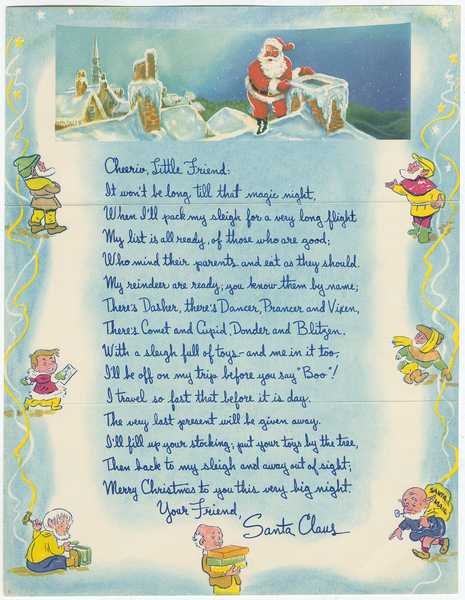 Cheerio, Little Friend:
It won't be long till that magic night,
When I'll pack my sleigh for a very long flight
My list is all ready, of those who are good;
Who mind their parents and eat as they should.
My reindeer are ready; you know them by name;
There's Dasher, there's Dancer, Prancer and Vixen,
There's Comet and Cupid, Donder and Blitzen.
With a sleigh full of toys - and me in it too,
I'll be off on my trip before you say "Boo"!
I travel so fast that before it is day.
The very last present will be given away.
I'll fill up your stocking; put your toys by the tree,
Then back to my sleigh and away out of sight;
Merry Christmas to you this very big night.
Your Friend,
Santa Claus
SANTA
MAIL